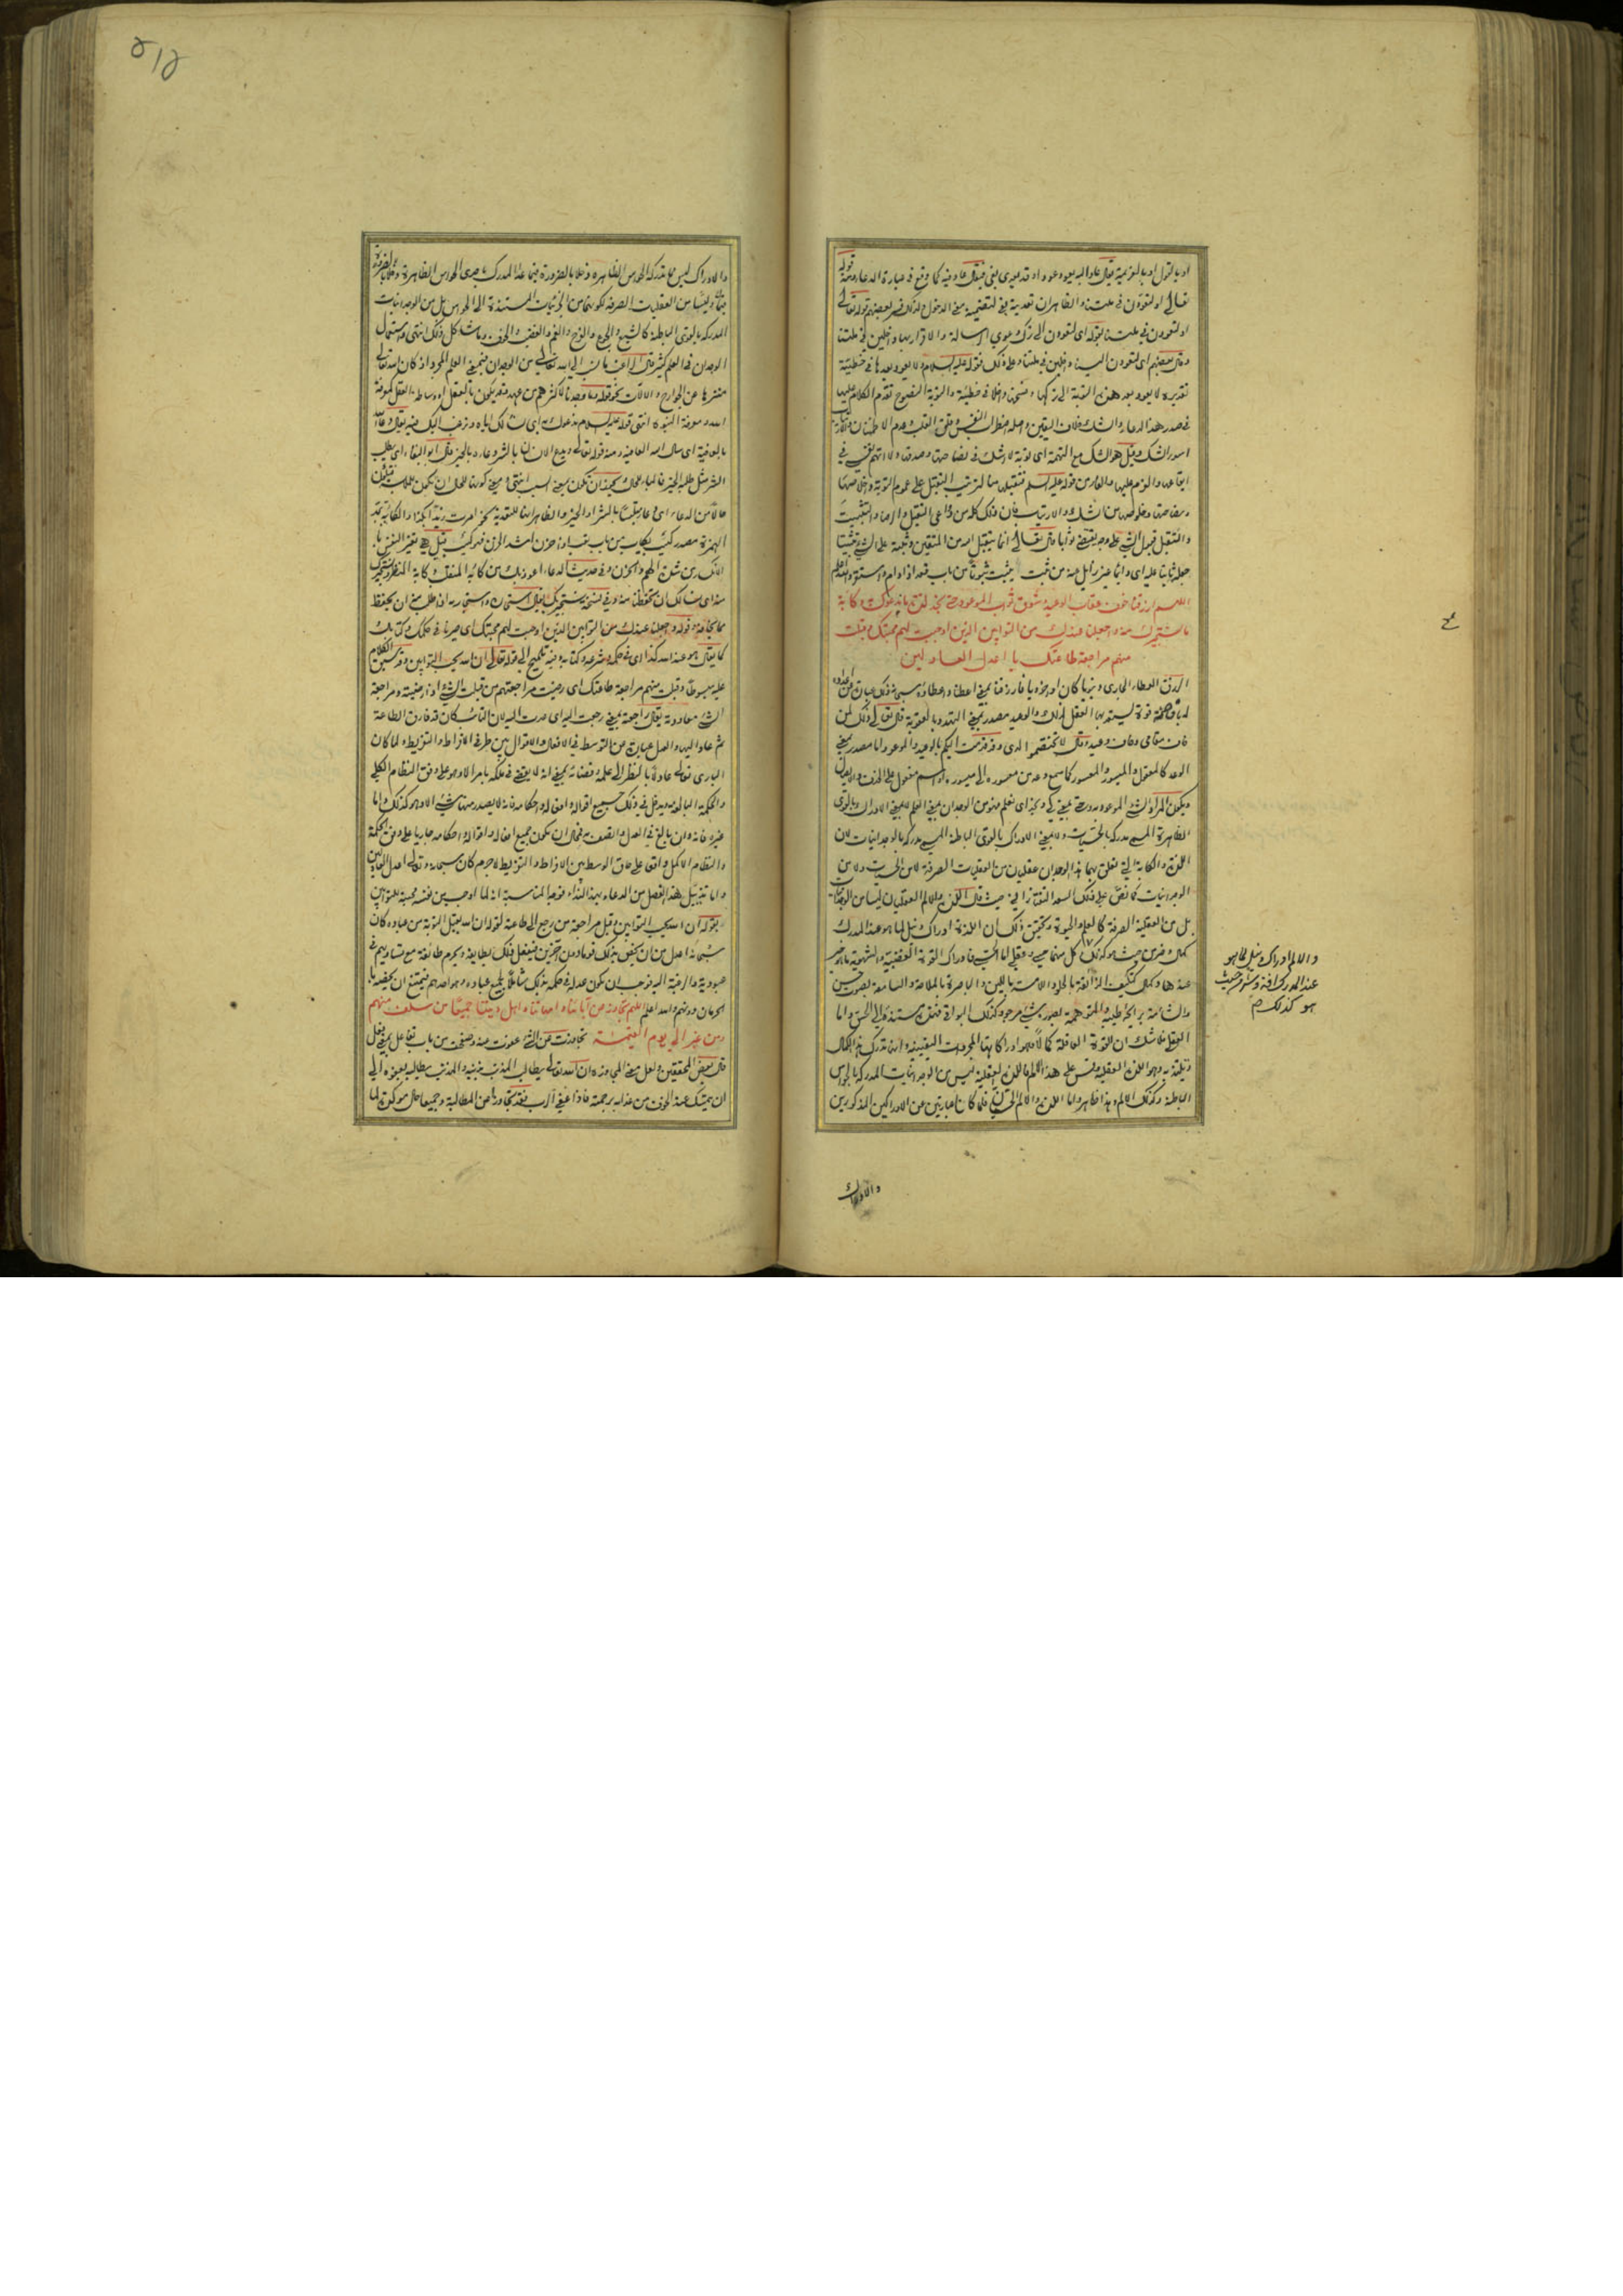 او بالقول او بالعزيمة يقال عاد اليه يعود عودا وقد يعدى بفى فيقال عاد فيه كما وقع فى عبارة الدعاء ومنه قوله
تعالى او لتعودن فى ملتنا والظاهر ان تعديته بفى لتضمينه معنى الدخول ولذلك فسر بعضهم قوله تعالى
او لتعودن فى ملتنا بقوله اى لتعودن الى ترك دعوى الرسالة والاقرار بها داخلين فى ملتنا
وقال بعضهم اى لتعودن الينا داخلين فى ملتنا وعلى ذلك فقوله عليه السلام ولا يعود بعدها فى خطيئة
تقديره لا يعود بعد هذه التوبة الى تركها ونقضها داخلا فى خطيئة والتوبة النصوح تقدم الكلام عليها
فى صدر هذا الدعاء والشك خلاف اليقين واصله اضطراب النفس وقلق القلب وعدم الاطمينان والارتياب
اسوء الشك وقيل هو الشك مع التهمة اى توبة لا شك فى نصاحتها وصدقها ولا اتهم نفسى فى
ايقاعها والعزم عليها والفاء من قوله عليه السلم فتقبلها منا لترتيب التقبل على عموم التوبة وخلاصتها
ونصاحتها وخلوصها من الشك والارتياب فان ذلك كله من دواعى التقبل والرضا والتثبيت
والتقبل قبول الشىء على وجه يقتضى ثوابا قال تعالى انما يتقبل الله من المتقين وثبته على الشىء تثبيتا
جعله ثابتا عليه اى دائما غير زايل عنه من ثبت يثبت ثبوتا من باب قعد اذا دام واستقر والله اعلم
اللهم ارزقنا خوف عقاب الوعيد وشوق ثواب الموعود حتى نجد لذة ما ندعوك به وكآبة
ما نستجيرك منه واجعلنا عندك من التوابين الذين اوجبت لهم محبتك وقبلت
منهم مراجعة طاعتك يا اعدل العادلين
الرزق العطاء الجارى دينويا كان او اخرويا فارزقنا بمعنى اعطنا واعطاؤه سبحانه ذلك عبارة عن اعداده
له بافاضة قوة يستعد بها العقل لذلك والوعيد مصدر بمعنى التهدد بالعقوبة قال تعالى ذلك لمن
خاف مقامى وخاف وعيد وقال لا تختصموا لدى وقد قدمت اليكم بالوعيد والموعود اما مصدر بمعنى
الوعد كالمعقول والميسور والمعسور كما سمع دعه من معسوره الى ميسوره او اسم مفعول على الحذف والايصال
ويكون المراد الشىء الموعود به وحتى بمعنى كى ونجد اى نعلم فهو من الوجدان بمعنى العلم لا بمعنى الادراك بالقوى
الظاهرة المسمى مدركه بالحسيات ولا بمعنى الادراك بالقوى الباطنة المسمى مدركه بالوجدانيات لان
اللذة والكآبة التى تعلق بهما هذا الوجدان عقليان من العقليات الصرفة لا من الحسيات ولا من
الوجدانيات كما نص على ذلك السعد التفتازانى حيث قال اللذة والالم العقليان ليسا من الوجدانيات
بل من العقلية الصرفة كالعلم والحيوة وتحقيق ذلك ان اللذة ادراك ونيل لما هو عند المدرك
كمال وخير من حيث هو كذلك وكل منهما حسى وعقلى اما الحسى فادراك القوة الغضبية والشهوية ما هو خير
عندها وكمال كتكيف الذائقة بالحلو واللامسة باللين والباصرة بالملاحة والسامعة بصوت حسن
والشامة برائحة طيبة والمتوهمة بصورة شىء مرجو وكذلك البواقى فهذه مستندة الى الحس واما
العقلى فلا شك ان للقوة العاقلة كمالا وهو ادراكاتها المجردات اليقينية وانها تدرك هذا الكمال
وتلتذ به وهو اللذة العقلية وقس على هذا الالم فاللذة العقلية ليس من الوجدانيات المدركة بالحواس
الباطنة وكذلك الالم وهذا ظاهر واما اللذة والالم الحسيان فلما كانا عبارتين عن الادراكين المذكورين
والالم ادراك ونيل لما هو
عند المدرك آفة وشر من حيث
هو كذلك صح
والادراك
٥١٤
والادراك ليس مما تدركه الحواس الظاهرة دخلا بالضرورة فيما عدا المدرك باحدى الحواس الظاهرة
وليسا من العقليات الصرفة لكونهما من الجزئيات المستندة الى الحواس بل من الوجدانيات
المدركة بالقوى الباطنة كالشبع والجوع والفرح والغم والغضب والخوف وما شاكل ذلك انتهى واستعمال
الوجدان فى العلم كثير قال الراغب ما نسب الى الله تعالى من الوجدان فبمعنى العلم المجرد اذ كان الله تعالى
منزها عن الجوارح والالات نحو قوله وما وجدنا لاكثرهم من عهد وقد يكون بالعقل او بوساطة العقل كمعرفة
الله ومعرفة النبوة انتهى قوله عليه السلام ندعوك به اى نسألك اياه ونرغب اليك فيه يقال دعا الله
بالعافية اى سأل الله العافية ومنه قوله تعالى ويدع الانسان بالشر دعاءه بالخير قال ابو البقاء اى يطلب
الشر مثل طلبه الخير فالباء للحال ويجوز ان تكون بمعنى السبب انتهى ومعنى كونها للحال ان تكون للملابسة فتكون
حالا من الدعاء اى دعاء متلبسا بالشر او الخير والظاهر انها للتعدية نحو امرت زيدا بكذا والكآبة بمد
الهمزة مصدر كئب يكأب من باب تعب اذا حزن اشد الحزن فهو كئيب وقيل هى تغير النفس با
لانكسار من شدة الهم والحزن وفى حديث الدعاء اعوذ بك من كآبة المنقلب كآبة المنظر ونستجيرك
منه اى نسألك ان تحفظنا منه وفى نسخة نستجير بك يقال استجاره واستجار به اذا طلب منه ان يحفظه
مما يخافه وقوله واجعلنا عندك من التوابين الذين اوجبت لهم محبتك اى صيرنا فى حكمك وكتابك
كما يقال هو عند الله كذا اى فى حكمه وشرعه وكتابه وفيه تلميح الى قوله تعالى ان الله يحب التوابين وقد سبق الكلام
عليه مبسوطا وقبلت منهم مراجعة طاعتك اى رضيت مراجعتهم من قبلت الشىء اذا رضيته ومراجعة
الشىء معاودته يقال راجعه بمعنى رجعت اليه اى عدت اليه لان التائب كان قد فارق الطاعة
ثم عاد اليها والعدل عبارة عن التوسط فى الافعال والاقوال بين طرفى الافراط والتفريط ولما كان
البارى تعالى عادلا بالنظر الى علمه وقضائه بمعنى انه لا يقضى فى ملكه بامر الا وهو على وفق النظام الكلى
والحكمة البالغة ويدخل فى ذلك جميع اقواله وافعاله واحكامه فانه لا يصدر منها شىء الا وهو كذلك واما
غيره فانه وان بالغ فى العدل والنصفة فمحال ان تكون جميع افعاله واقواله واحكامه جارية على وفق الحكمة
والنظام الاكمل واقعا على حاق الوسط بين الافراط والتفريط لا جرم كان سبحانه وتعالى اعدل العادلين
واما تذييل هذا الفصل من الدعاء بهذا النداء فوجه المناسبة انه لما اوجب من نفسه محبة للتوابين
بقوله ان الله يحب التوابين وقبل مراجعة من رجع الى طاعته لقوله ان الله يقبل التوبة من عباده كان
سبحانه اعدل من ان يخص بذلك قوما دون آخرين فيفعل ذلك بطايفة ويحرم طائفة مع تساويهم فى
عبوديته والرغبة اليه فوجب ان يكون عدله فى حكمه بذلك شاملا لجميع عباده وهو احدهم فيمتنع ان يخصه با
لحرمان دونهم والله اعلم اللهم تجاوز عن آبائنا وامهاتنا واهل ديننا جميعا من سلف منهم
ومن غبر الى يوم القيمة تجاوزت عن الشىء عفوت عنه وصفحت من باب تفاعل بمعنى فعل
قال بعض المحققين ولعل معنى المجاوزة ان الله تعالى يطالب المذنب بذنبه والمذنب يطالبه بعفوه الى
ان يتمسك عند الخوف من عذابه برحمته فاذا عفى الرب فقد تجاوزا عن المطالبة وجميعا حال مؤكدة لما